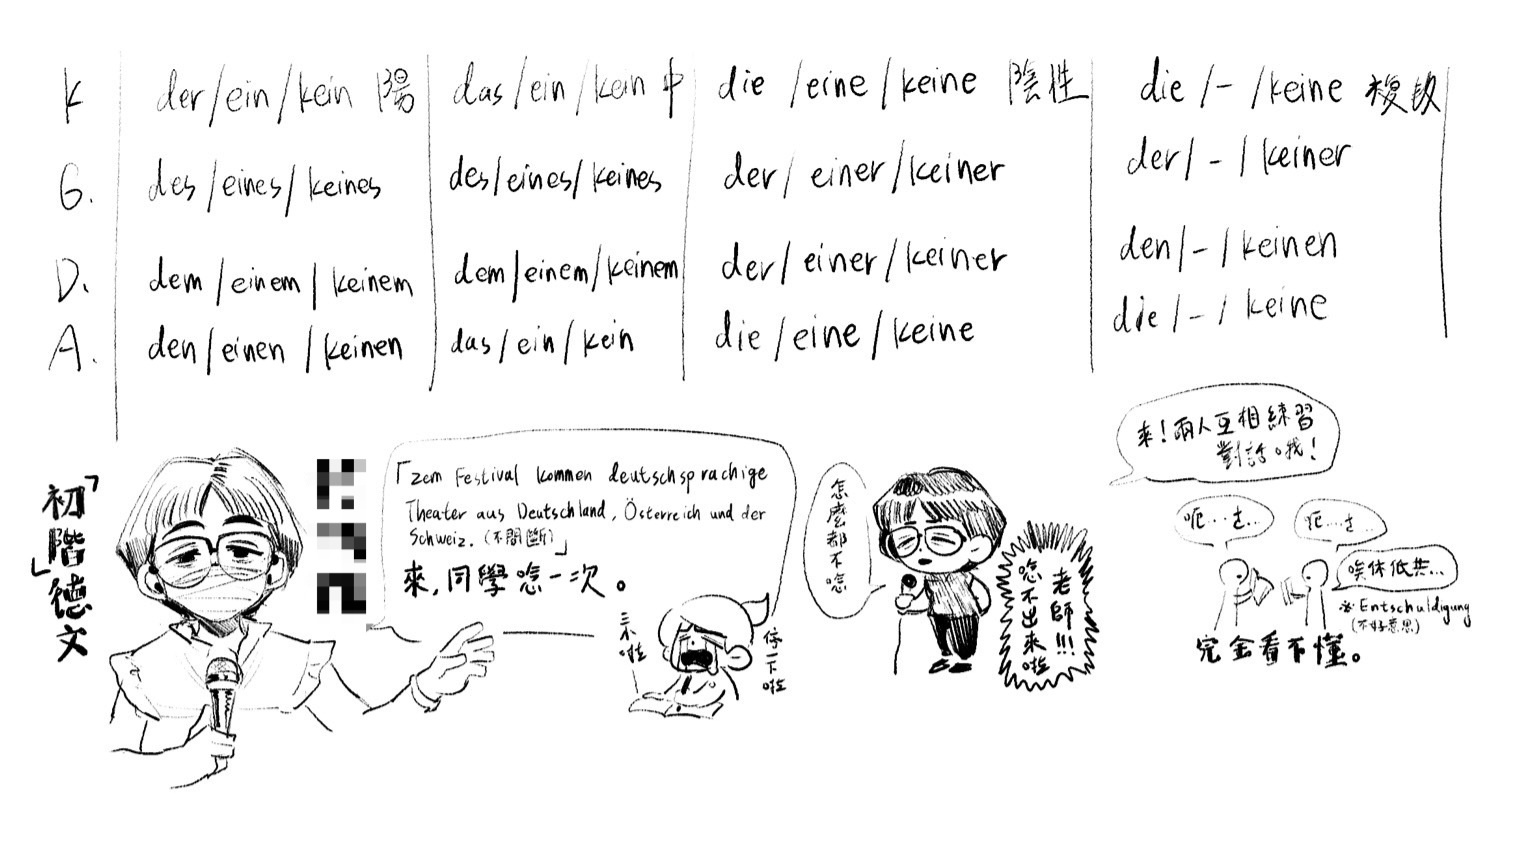 K der/ein/kein 陽 das/ein/kein 中 die/eine/keine 陰性 die/-/keine 複數
G. des/eines/keines des/eines/keines der/einer/keiner der/-/keiner
D. dem/einem/keinem dem/einem/keinem der/einer/keiner den/-/keinen
A. den/einen/keinen das/ein/kein die/eine/keine die/-/keine
「初階德文」
「zum Festival kommen deutschsprachige
Theater aus Deutschland, Österreich und der
Schweiz. (不間斷)」
來,同學唸一次。
三小啦
停一下啦
怎麼都不唸
老師!!!
唸不出來啦
來!兩人互相練習
對話哦!
呃…ㄜ..
呃…ㄜ..
唉休低共…
※Entschuldigung
(不好意思)
完全看不懂。